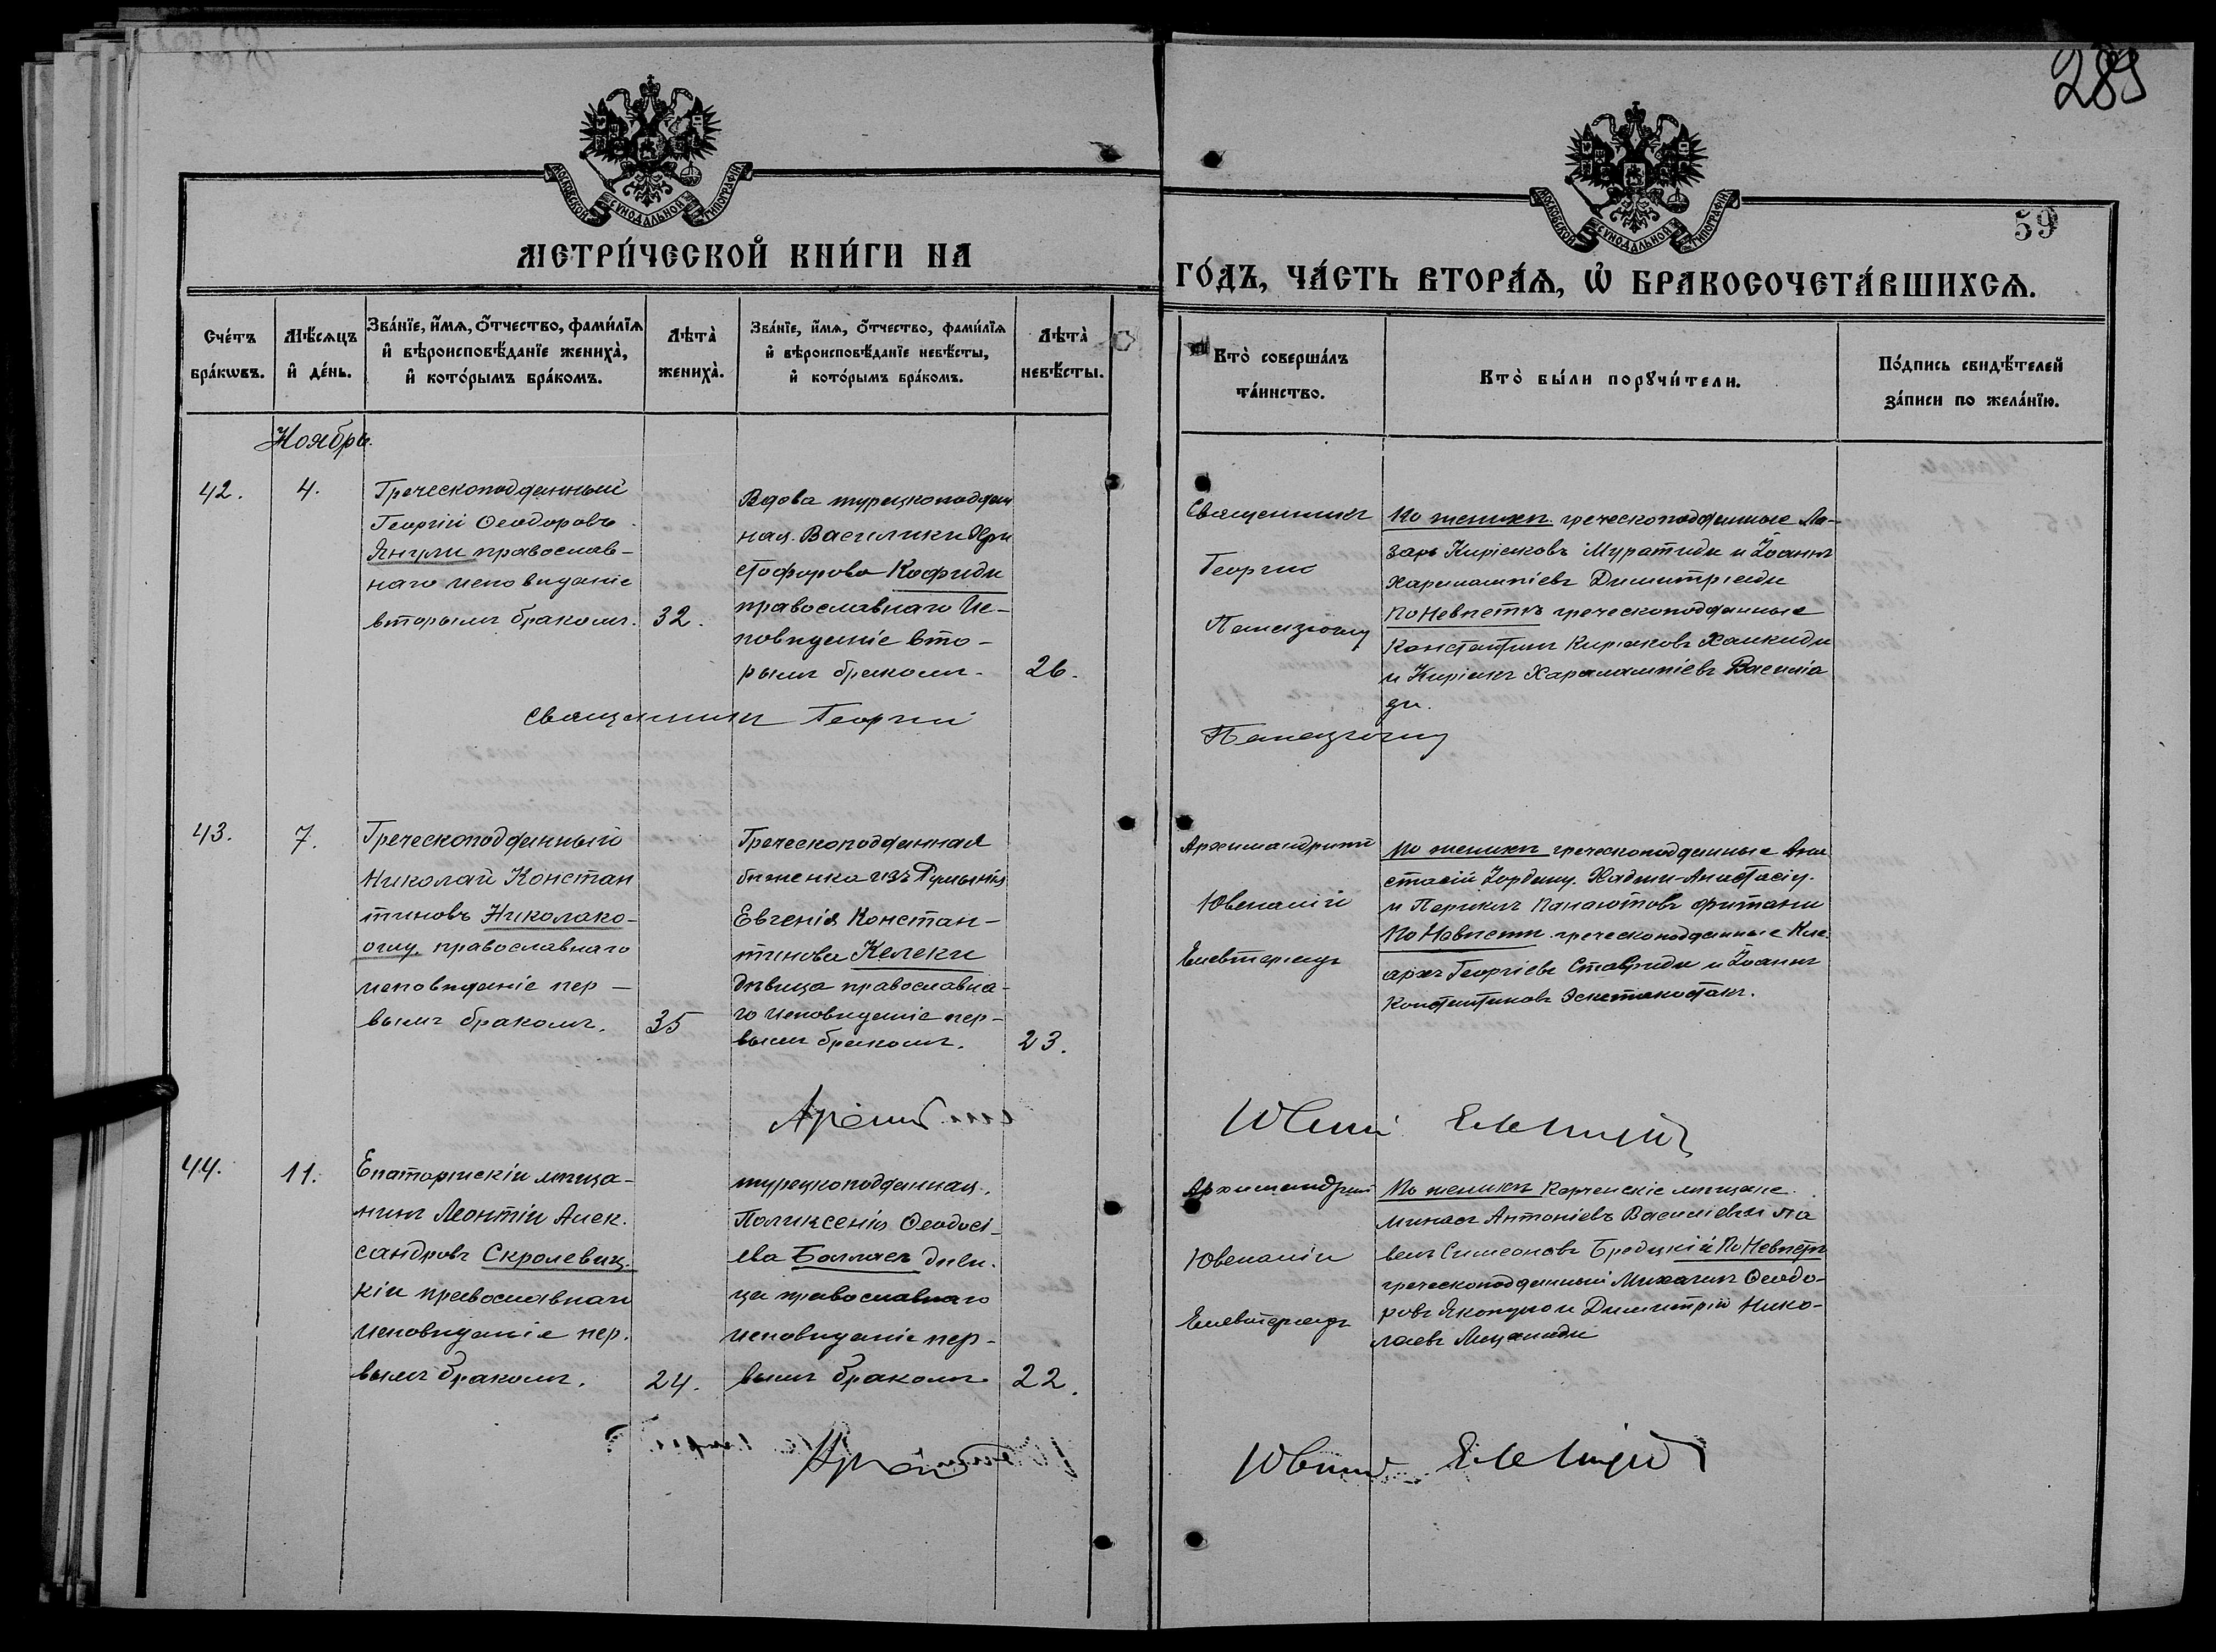 289
МОСКОВСКОЙ СѴНОДАЛЬНОЙ ТИПОГРАФІИ
МОСКОВСКОЙ СѴНОДАЛЬНОЙ ТИПОГРАФІИ
59
МЕТРИ́ЧЕСКОЙ КНИ́ГИ НА
ГО́ДЪ, ЧА́СТЬ ВТОРА́Ѧ, Ѡ҆ БРАКОСОЧЕТА́ВШИХСѦ.
Сче́тъ бра́кѡвъ.
Мѣ́сѧцъ и҆ де́нь.
Зва́нїе, и҆́мѧ, ѻ҆́тчество, фами́лїѧ и҆ вѣроисповѣ́данїе жениха̀, и҆ кото́рымъ бра́комъ.
Лѣта̀ жениха̀.
Зва́нїе, и҆́мѧ, ѻ҆́тчество, фами́лїѧ и҆ вѣроисповѣ́данїе невѣ́сты, и҆ кото́рымъ бра́комъ.
Лѣта̀ невѣ́сты.
Кто̀ соверша́лъ та́инство.
Кто̀ бы́ли порꙋчи́тели.
По́дпись свидѣ́телей за́писи по жела́нїю.
Ноябрь.
42.
4.
Греческоподданный
Георгій Ѳеодоровъ
Янули православ-
наго исповѣданіе
вторымъ бракомъ.
32.
Вдова турецкоподдан
ная. Василики Хри
стофорова Кофиди
православнаго Ис-
повѣданіе вто-
рымъ бракомъ.
26.
Священникъ
Георгій
По женихѣ. греческоподданные Ла-
зарь Киріаковъ Муратиди и Іоаннъ
Харлампіевъ Димитріади
По Невѣстѣ греческоподданные
Константинъ Киріаковъ
и Киріакъ Харалампіевъ Василіа
ди.
Священникъ Георгій
43.
7.
Греческоподданный
Николай Констан
тиновъ Николако-
оглу, православнаго
исповѣданіе пер-
вымъ бракомъ.
35
Греческоподданная
бѣженка изъ Румыніи
Евгенія Констан-
тинова Келеки
дѣвица православна-
го исповѣданіе пер-
вымъ бракомъ.
23.
Архимандритъ
Ювеналій
По женихѣ греческоподданные Ана
стасій Хаджи-Анастасіу.
и Периклъ Панаіотовъ
По Невѣстѣ. греческоподданные Кле
архъ Георгіевъ Ставриди и Іоаннъ
Константиновъ
44.
11.
Евпаторійскій мѣща-
нинъ Леонтій Алек.
сандровъ Скролевиц.
кій православнаго
исповѣданіе пер.
вымъ бракомъ.
24.
турецкоподданная.
Поликсенія Ѳеодосі-
ева дѣви.
ца православнаго
исповѣданіе пер-
вымъ бракомъ
22.
Архимандритъ
Ювеналій
По женихѣ Керченскіе мѣщане.
Минасъ Антоніевъ Василіевъ и Па
велъ Симеоновъ Бродецкій По Невѣстѣ
греческоподданный Михаилъ Ѳеодо-
ровъ и Димитрій Нико-
лаевъ